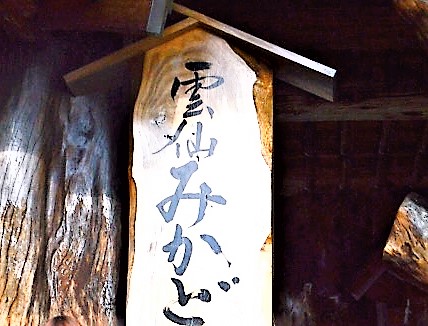 雲仙みかど